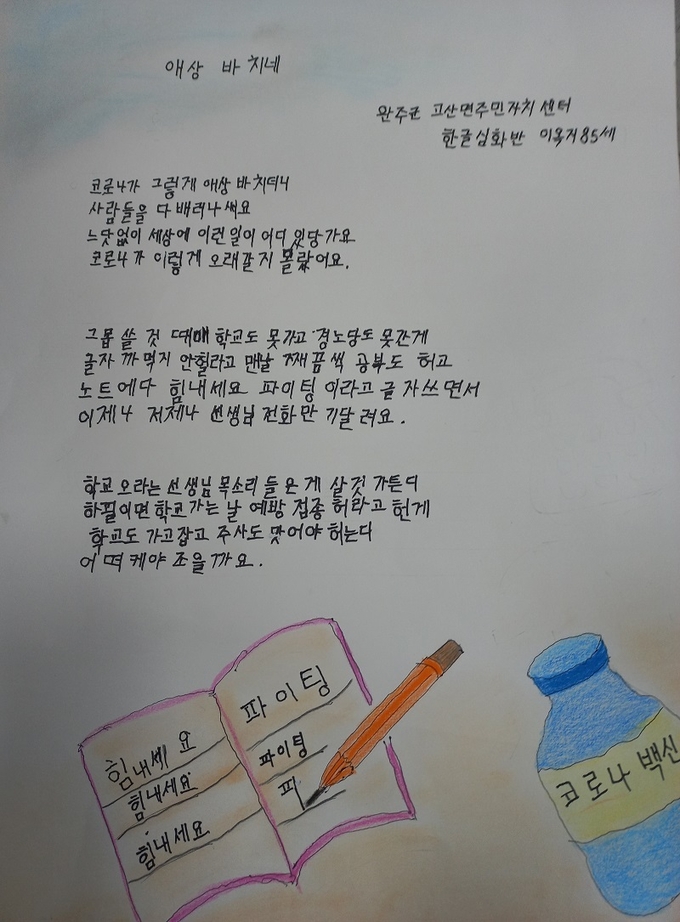 애상 바치네
완주군 고산면주민자치센터
한글심화반 이옥거 85세
코로나가 그렇게 애상 바치더니
사람들을 다 배려나써요
느닷없이 세상에 이런일이 어디 있당가요
코로나가 이렇게 오래갈지 몰랐어요.
그몹 쓸 것 때매 학교도 못가고 경노당도 못간게
글자 까먹지 안헐라고 맨날 째끔씩 공부도 허고
노트에다 힘내세요 파이팅 이라고 글자쓰면서
이제나 저제나 선생님 전화만 기달려요.
학교오라는 선생님 목소리 들은게 살것 가튼디
하필이면 학교가는 날 예방 접종 허라고 헌게
학교도 가고잡고 주사도 맞어야 허는디
어떠케야 조을까요.
힘내세요
힘내세요
힘내세요
파이팅
파이팅
피
코로나 백신